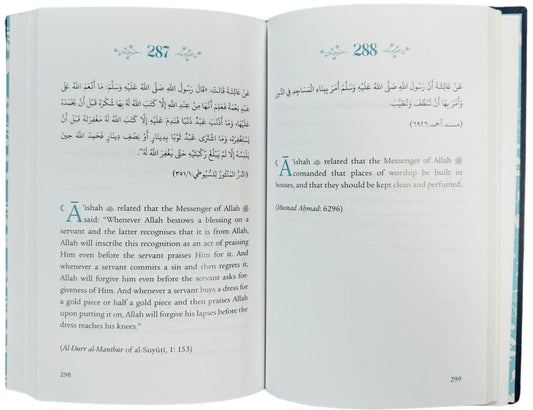 287
عَنْ عَائِشَةَ قَالَتْ: «قَالَ رَسُولُ اللَّهِ صَلَّى اللَّهُ عَلَيْهِ وَسَلَّمَ: مَا أَنْعَمَ اللَّهُ عَلَى
عَبْدٍ نِعْمَةً فَعَلِمَ أَنَّهَا مِنْ عِنْدِ اللَّهِ إِلَّا كَتَبَ اللَّهُ لَهُ بِهَا شُكْرَهُ قَبْلَ أَنْ يَحْمَدَهُ
عَلَيْهَا، وَمَا أَذْنَبَ عَبْدٌ ذَنْبًا فَنَدِمَ عَلَيْهِ إِلَّا كَتَبَ اللَّهُ لَهُ مَغْفِرَتَهُ قَبْلَ أَنْ
يَسْتَغْفِرَهُ، وَمَا اشْتَرَى عَبْدٌ ثَوْبًا بِدِينَارٍ أَوْ نِصْفِ دِينَارٍ فَحَمِدَ اللَّهَ حِينَ
يَلْبَسُهُ إِلَّا لَمْ يَبْلُغْ رُكْبَتَيْهِ حَتَّى يَغْفِرَ اللَّهُ لَهُ».
(الدُّرُّ الْمَنْثُورُ لِلسُّيُوطِي ١/
‘Ā’ishah related that the Messenger of Allah ﷺ
said: “Whenever Allah bestows a blessing on a
servant and the latter recognises that it is from Allah,
Allah will inscribe this recognition as an act of praising
Him even before the servant praises Him for it. And
whenever a servant commits a sin and then regrets it,
Allah will forgive him even before the servant asks for-
giveness of Him. And whenever a servant buys a dress for
a gold piece or half a gold piece and then praises Allah
upon putting it on, Allah will forgive his lapses before the
dress reaches his knees.”
(Al-Durr al-Manthūr of al-Suyūtī, 1: 153)
298
288
عَنْ عَائِشَةَ أَنَّ رَسُولَ اللَّهِ صَلَّى اللَّهُ عَلَيْهِ وَسَلَّمَ أَمَرَ بِبِنَاءِ الْمَسَاجِدِ فِي الدُّورِ
وَأَمَرَ بِهَا أَنْ تُنَظَّفَ وَتُطَيَّبَ.
(مسند أحمد:
‘Ā’ishah related that the Messenger of Allah ﷺ
comanded that places of worship be built in
houses, and that they should be kept clean and perfumed.
(Musnad Ahmad: 6296)
299